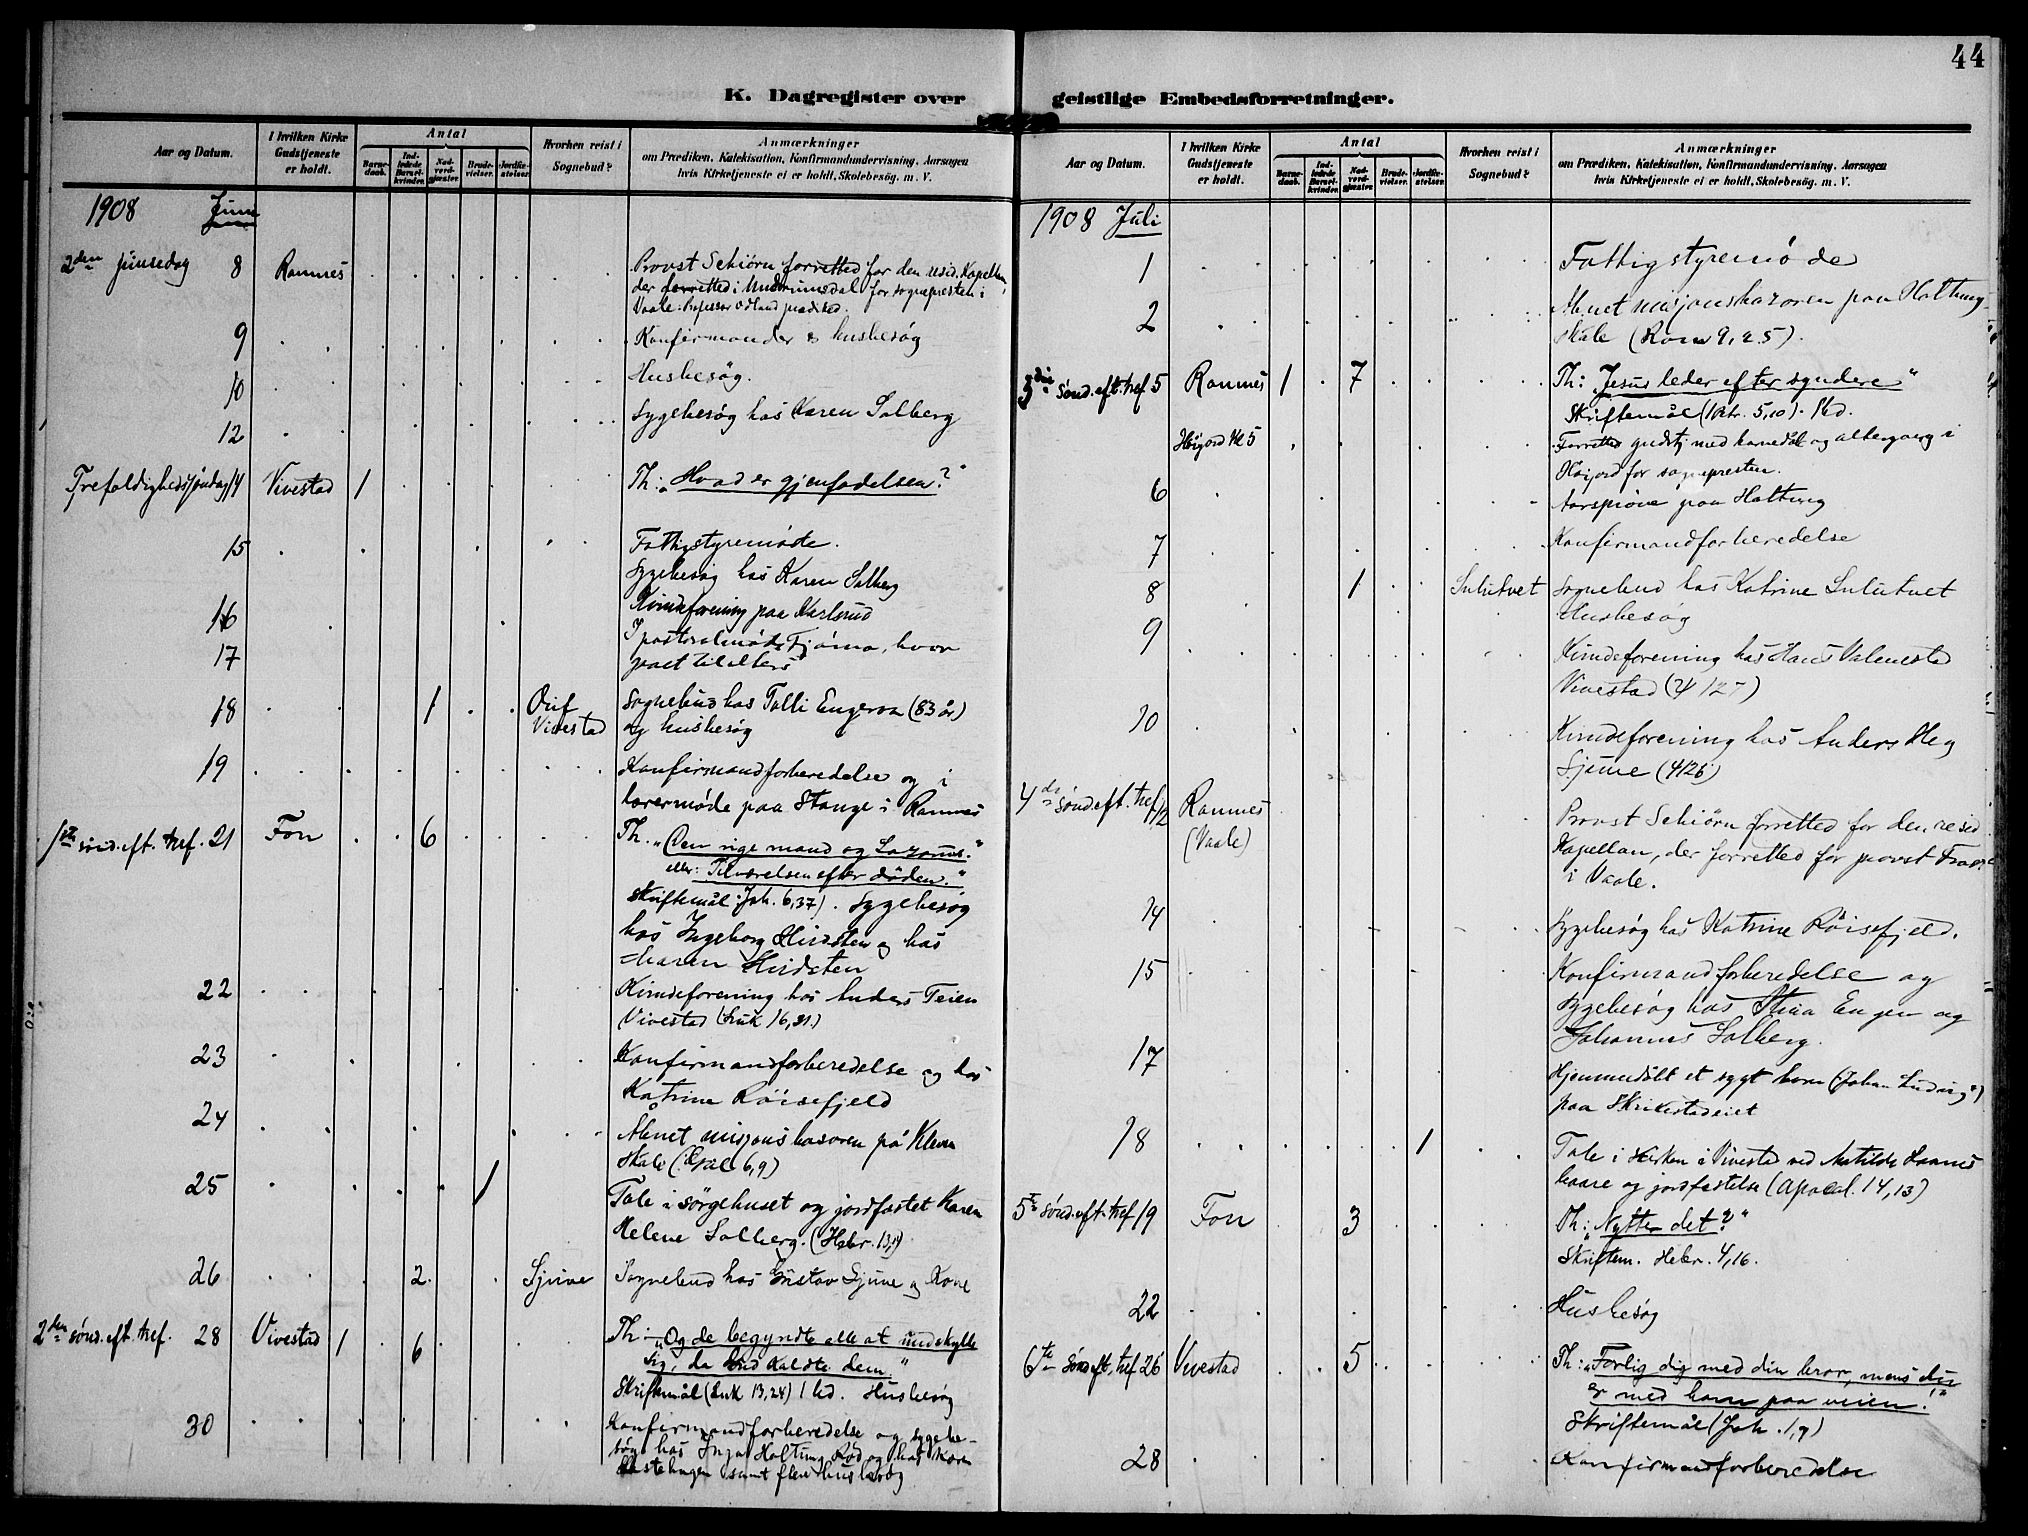 44
K. Dagregister over geistlige Embedsforretninger.
Aar og Datum.
I hvilken Kirke Gudstjeneste er holdt.
Antal
Barnedaab.
Indledede Barselkvinder.
Nadverdgjæster.
Brudevielser.
Jordfæstelser
Hvorhen reist i Sognebud?
Anmærkninger
om Prædiken, Katekisation, Konfirmandundervisning, Aarsagen
hvis Kirketjeneste ei er holdt, Skolebesøg. m. V.
1908 Juni
2den pinsedag 8 Ramnes Provst Schiørn forretted for den resid. Kapellan,
der forretted i Undrumsdal for sognepresten i
Vaale. Professor Odland prædiked.
9 Konfirmander & husbesøg
10 Husbesøg.
12 Sygebesøg hos Karen Solberg
Trefoldighedssøndag 14 Vivestad 1 Th: "Hvad er gjenfødelsen?"
15 Fattigstyremøde.
Sygebesøg hos Karen Solberg
16 Kvindeforening paa Karlsrud
17 I pastoralmøde Tjømø, hvor
18 1 Vivestad Sognebud hos Engeraa (83 år)
og husbesøg
19 Konfirmandforberedelse og i
lærermøde paa Stange i Ramnes
1ste sønd. eft. tref. 21 Fon 6 Th. "Den rige mand og Lazarus."
eller: Tilværelsen efter døden."
Skriftemål: Joh. 6,37). Sygebesøg
hos Ingeborg Hirdsten og hos
Maren Hirdsten
22 Kvindeforening hos Anders Teien
Vivestad (Luk 16,31.)
23 Konfirmandforberedelse og hos
Katrine Röisefjeld
24 Åbnet misjonsbasaren på Kleven
Skole (Gal 6,9)
25 1 Tale i sørgehuset og jordfæstet Karen
Helene Solberg. (Hebr. 13,14)
26 2 Sjuve Sognebud hos Gustav Sjuve og Kone
2den sønd. eft. tref. 28 Vivestad 1 6 Th: "Og de begyndte alle at undskylde
sig, da Gud kaldte dem."
Skriftemål (Luk 13,24) 1 hd. Husbesøg
30 Konfirmandforberedelse og sygebesøg
hos Inga Holtung Rød og hos Karen
samt flere husbesøg
Aar og Datum.
I hvilken Kirke Gudstjeneste er holdt.
Antal
Barnedaab.
Indledede Barselkvinder.
Nadverdgjæster.
Brudevielser.
Jordfæstelser
Hvorhen reist i Sognebud?
Anmærkninger
om Prædiken, Katekisation, Konfirmandundervisning, Aarsagen
hvis Kirketjeneste ei er holdt, Skolebesøg. m. V.
1908 Juli
1 Fattigstyremøde
2 Åbnet misjonsbazaren paa Holtung
skole (Rom 9, 2.5).
3die sønd. eft. tref 5 Ramnes 1 7 Th: "Jesus leder efter syndere"
Skriftemål (1 Petr. 5,10). 1 hd.
Høijord Kl 5 Forretted gudstj. med barnedåb og altergang i
Høijord for sognepresten.
6 Aarsprøve paa Holtung
7 Konfirmandforberedelse
8 1 Sulutvet Sognebud hos Katrine Sulutvet
Husbesøg
9 Kvindeforening hos Hans Valmestad
Vivestad (Ψ 127)
10 Kvindeforening hos Anders Heg
Sjuve (Ψ 126)
4de sønd. eft. tref. 12 Ramnes
(Vaale) Provst Schiørn forretted for den resid.
Kapellan, der forretted for provst
i Vaale.
14 Sygebesøg hos Katrine Röisefjeld.
15 Konfirmandforberedelse og
sygebesøg hos Stina Engen og
Johannes Solberg.
17 Hjemmedöbt et sygt barn (Johan Ludvig?)
paa Skrikestadeiet
18 1 Tale i Kirken i Vivestad ved Matilde
baare og jordfæstelse (Apocal. 14,13)
5te sønd. eft. tref 19 Fon 3 Th: "Nytter det?"
Skriftem. Hebr. 4,16.
22 Husbesøg
6te sønd eft. tref 26 Vivestad 5 Th: "Forlig dig med din bror, mens du
er med ham paa veien!"
Skriftemål (Joh. 1,9)
28 Konfirmandforberedelse